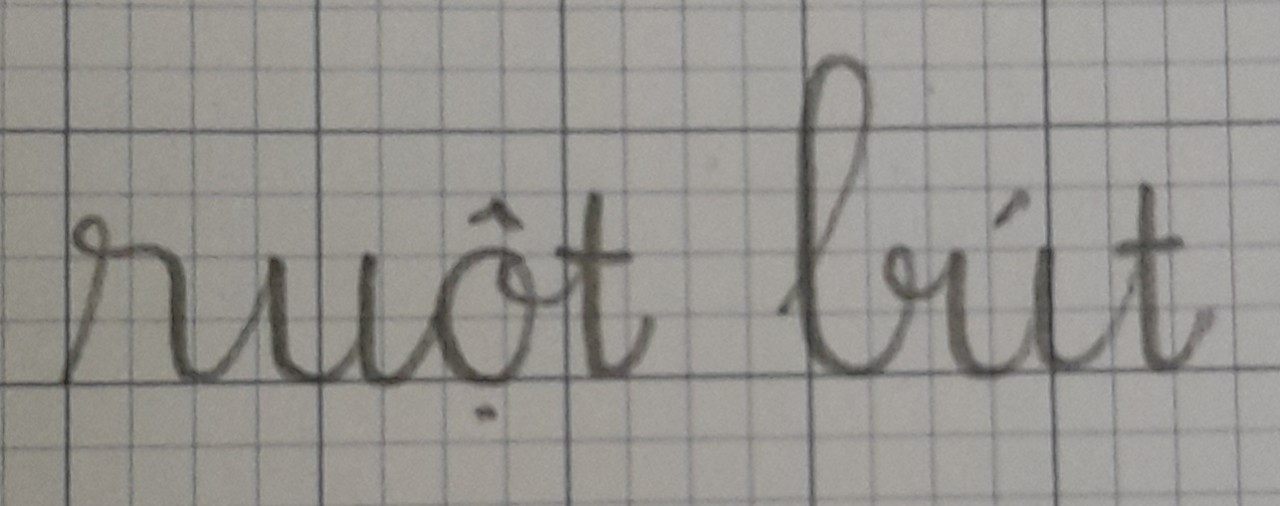 ruột bút